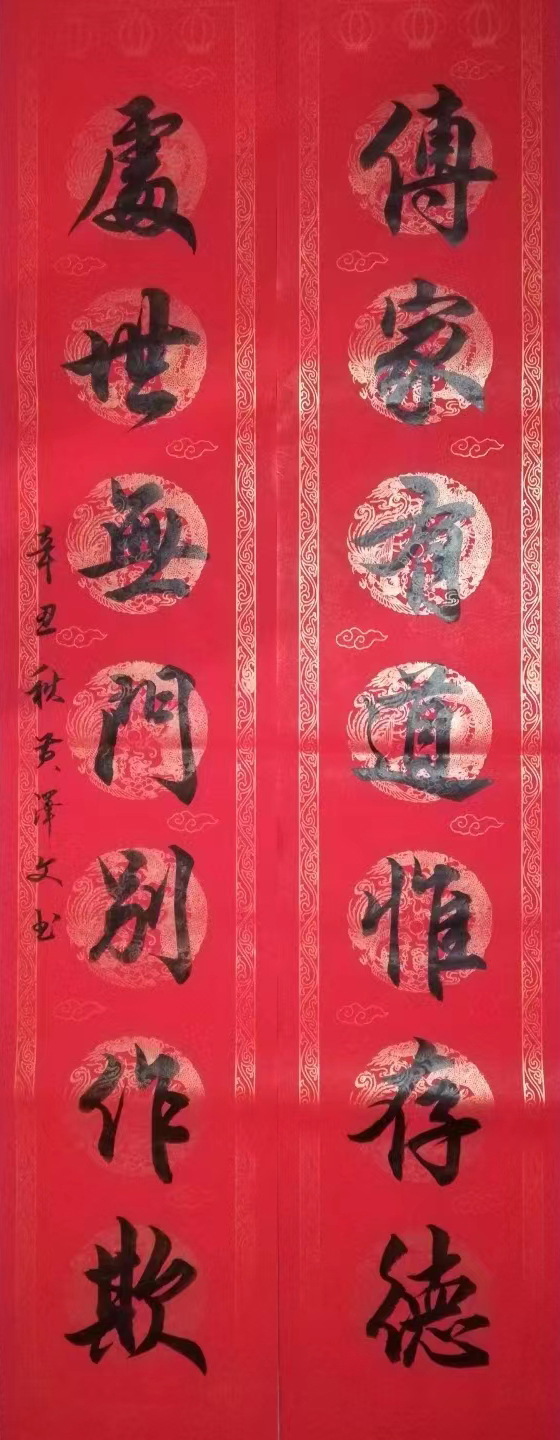 傳家有道惟存德
處世無門別作欺
辛丑秋黄澤文书